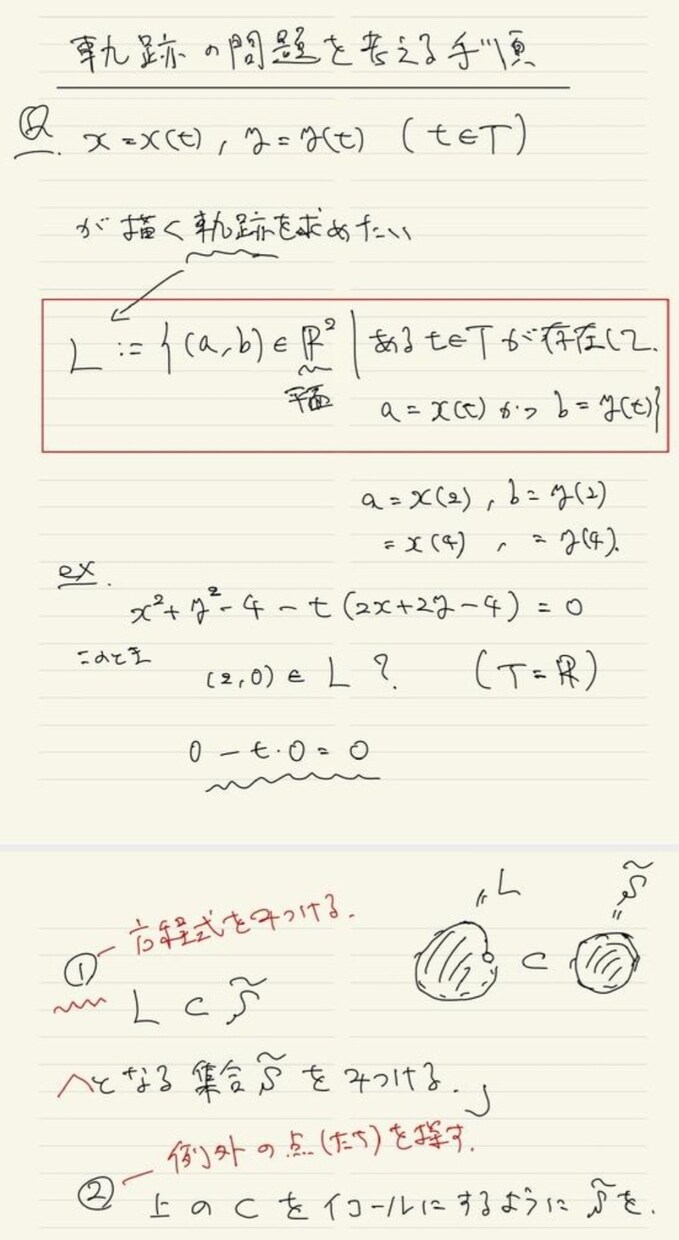 軌跡の問題を考える手順
Q. x=x(t), y=y(t) (t∈T)
が描く軌跡を求めたい
L := {(a,b)∈ℝ² | ある t∈T が存在して.
平面
a=x(t) かつ b=y(t)}
a=x(2), b=y(2)
=x(4), =y(4).
ex.
x²+y²-4-t(2x+2y-4)=0
このとき
(2,0)∈L? (T=ℝ)
0-t·0=0
方程式をみつける.
① L⊂S̃
=L ⊂ S̃=
となる集合S̃をみつける.
例外の点(たち)を探す.
② 上の⊂をイコールにするようにS̃を.